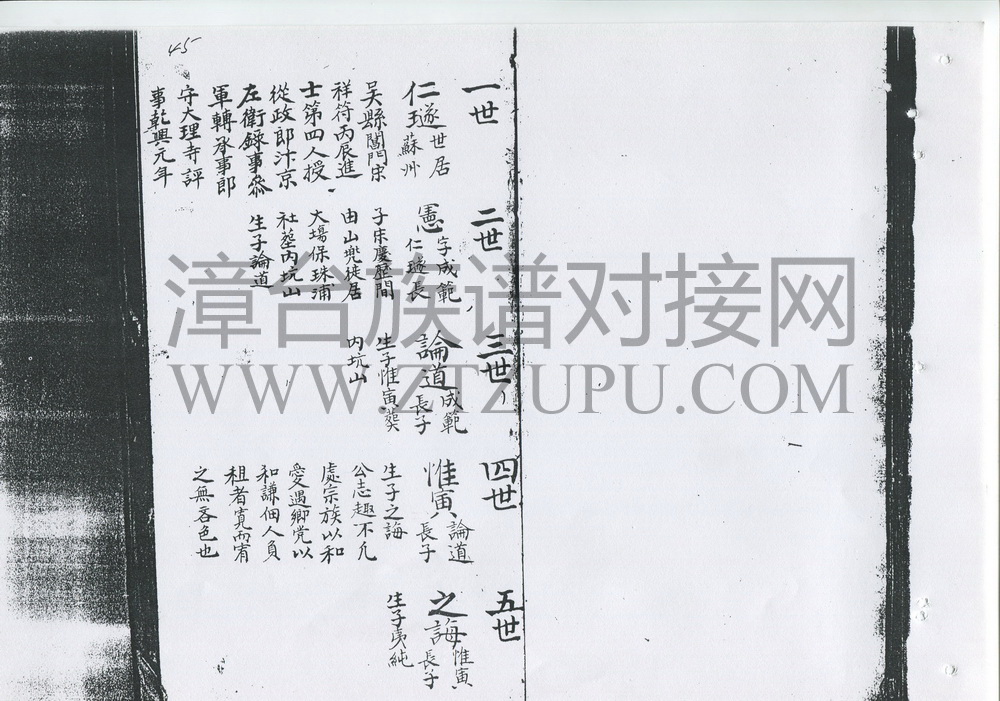 45
一世
仁璲世居
蘇州
吴縣閶門宋
祥符丙辰進
士第四人授
從政郎汴京
左衛錄事叅
軍轉承事郎
守大理寺評
事乾興元年
二世
憲字成範
仁璲長
子宋慶曆間
由山兜徙居
大塲保珠浦
社塟内坑山
生子論道
三世
論道成範
長子
生子惟寅葬
内坑山
四世
惟寅論道
長子
生子之誨
公志趣不凢
處宗族以和
愛遇鄉党以
和謙佃人負
租者寛而宥
之無吝色也
五世
之誨惟寅
長子
生子夷純
漳台族谱对接网
WWW.ZTZUPU.COM